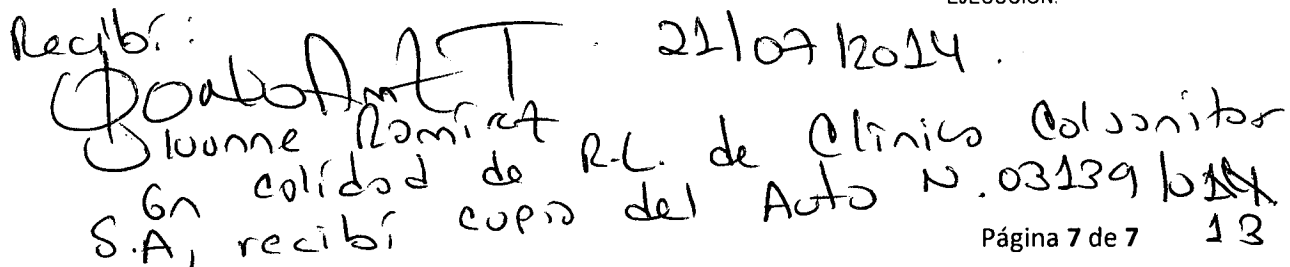 EJECUCIÓN.
Recibí: 21/07/2014.
Ivonne Ramírez
En calidad de R.L. de Clínica Colsanitas
S.A, recibí copia del Auto N. 03139
13
Página 7 de 7